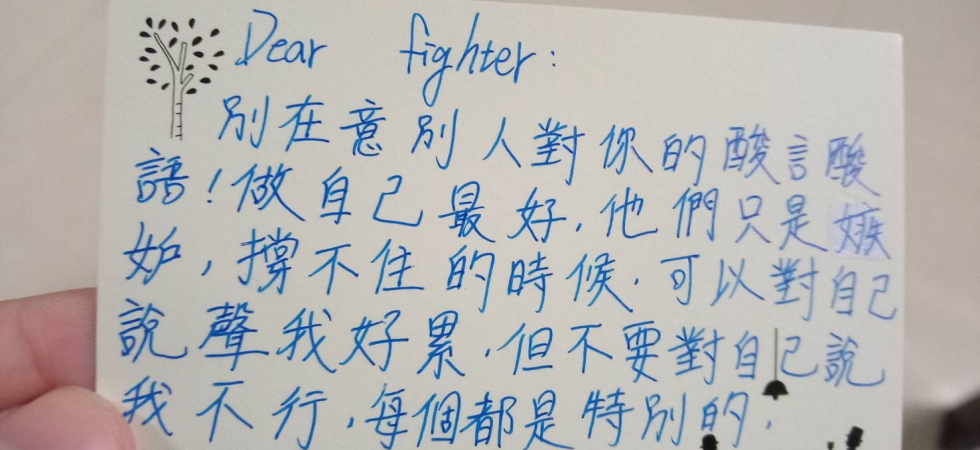 Dear fighter:
別在意別人對你的酸言酸
語!做自己最好,他們只是嫉
妒,撐不住的時候,可以對自己
說聲我好累,但不要對自己說
我不行,每個都是特別的.